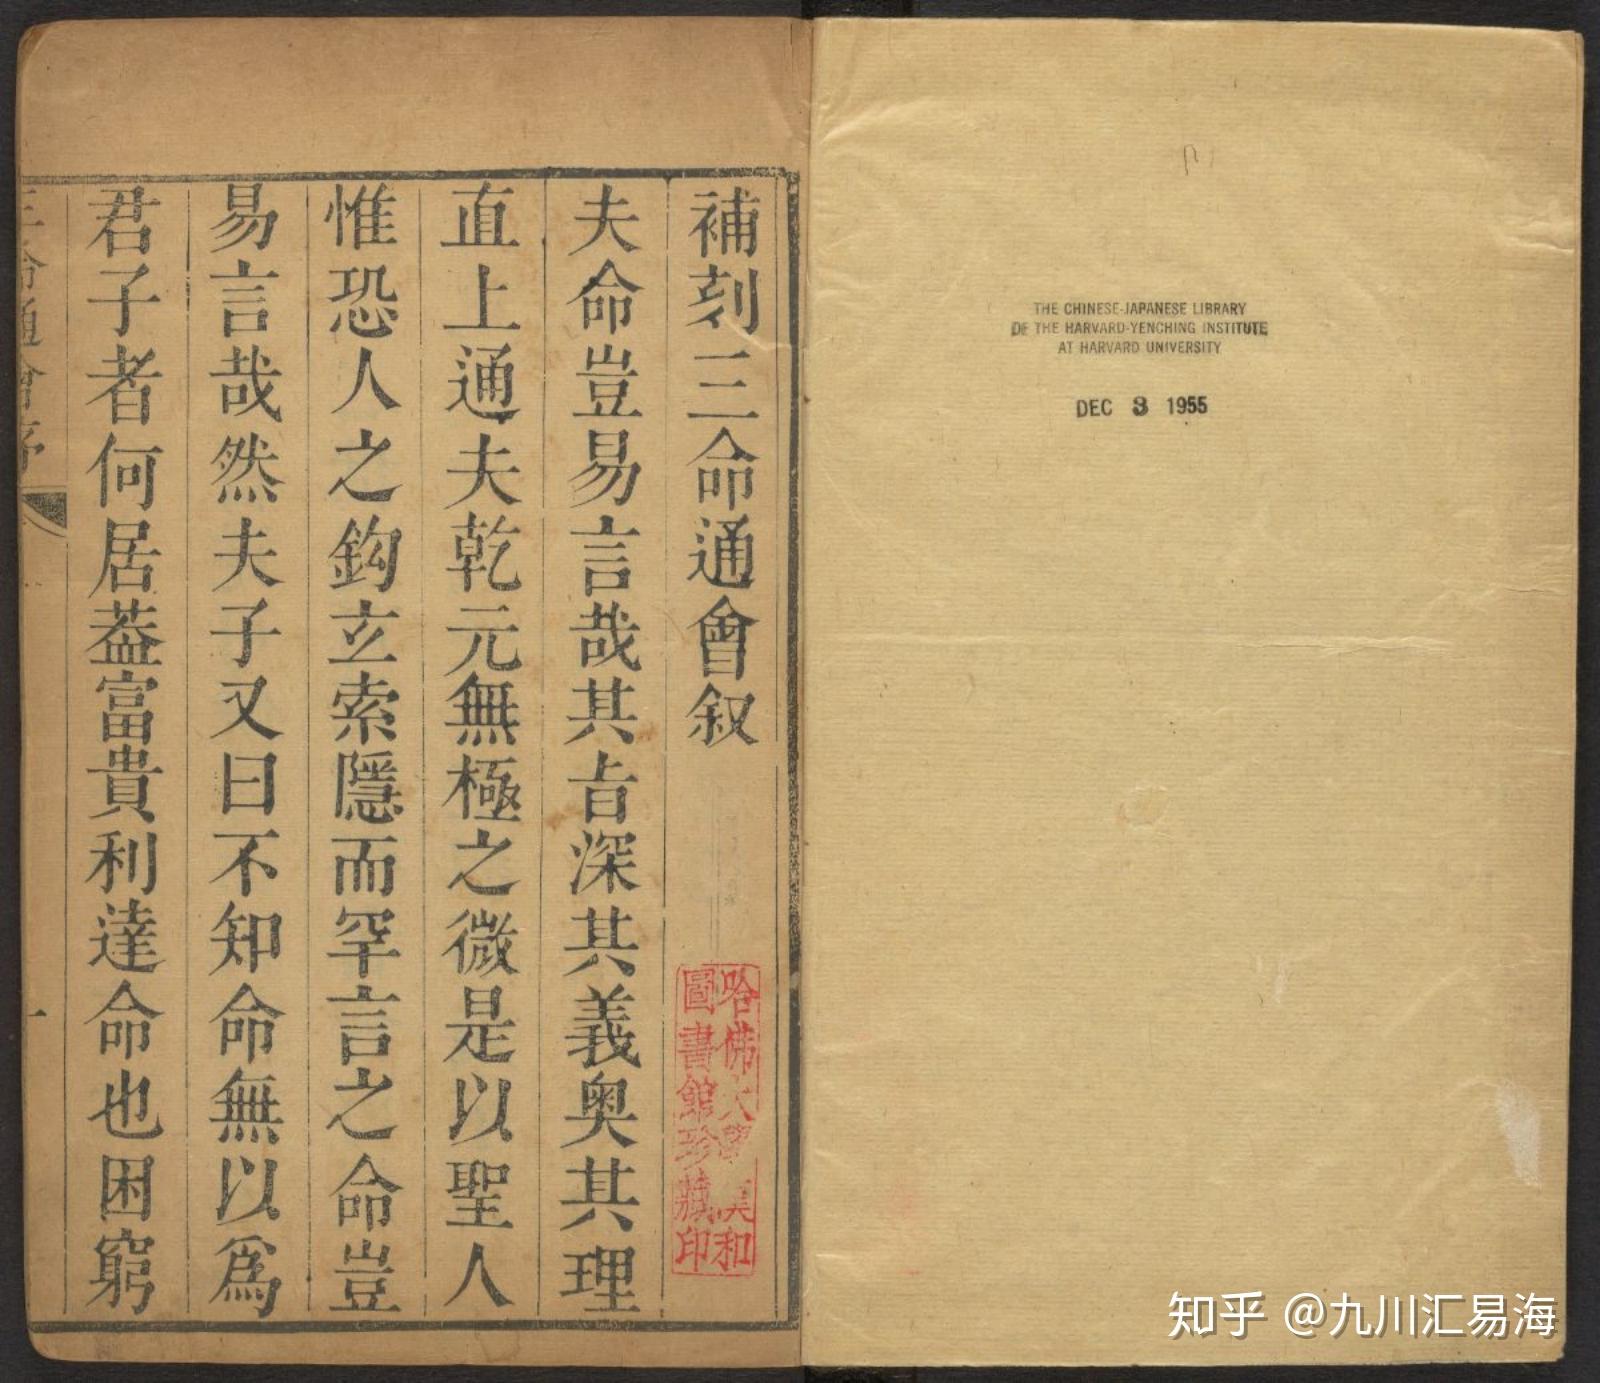 補刻三命通會叙
夫命豈易言哉其㫖深其義奥其理
直上通夫乾元無極之微是以聖人
惟恐人之鈎玄索隱而罕言之命豈
易言哉然夫子又曰不知命無以爲
君子者何居葢富貴利達命也困窮
三命通會序
一
哈佛大學漢和
圖書館珍藏印
THE CHINESE-JAPANESE LIBRARY
OF THE HARVARD-YENCHING INSTITUTE
AT HARVARD UNIVERSITY
DEC 3 1955
知乎 @九川汇易海